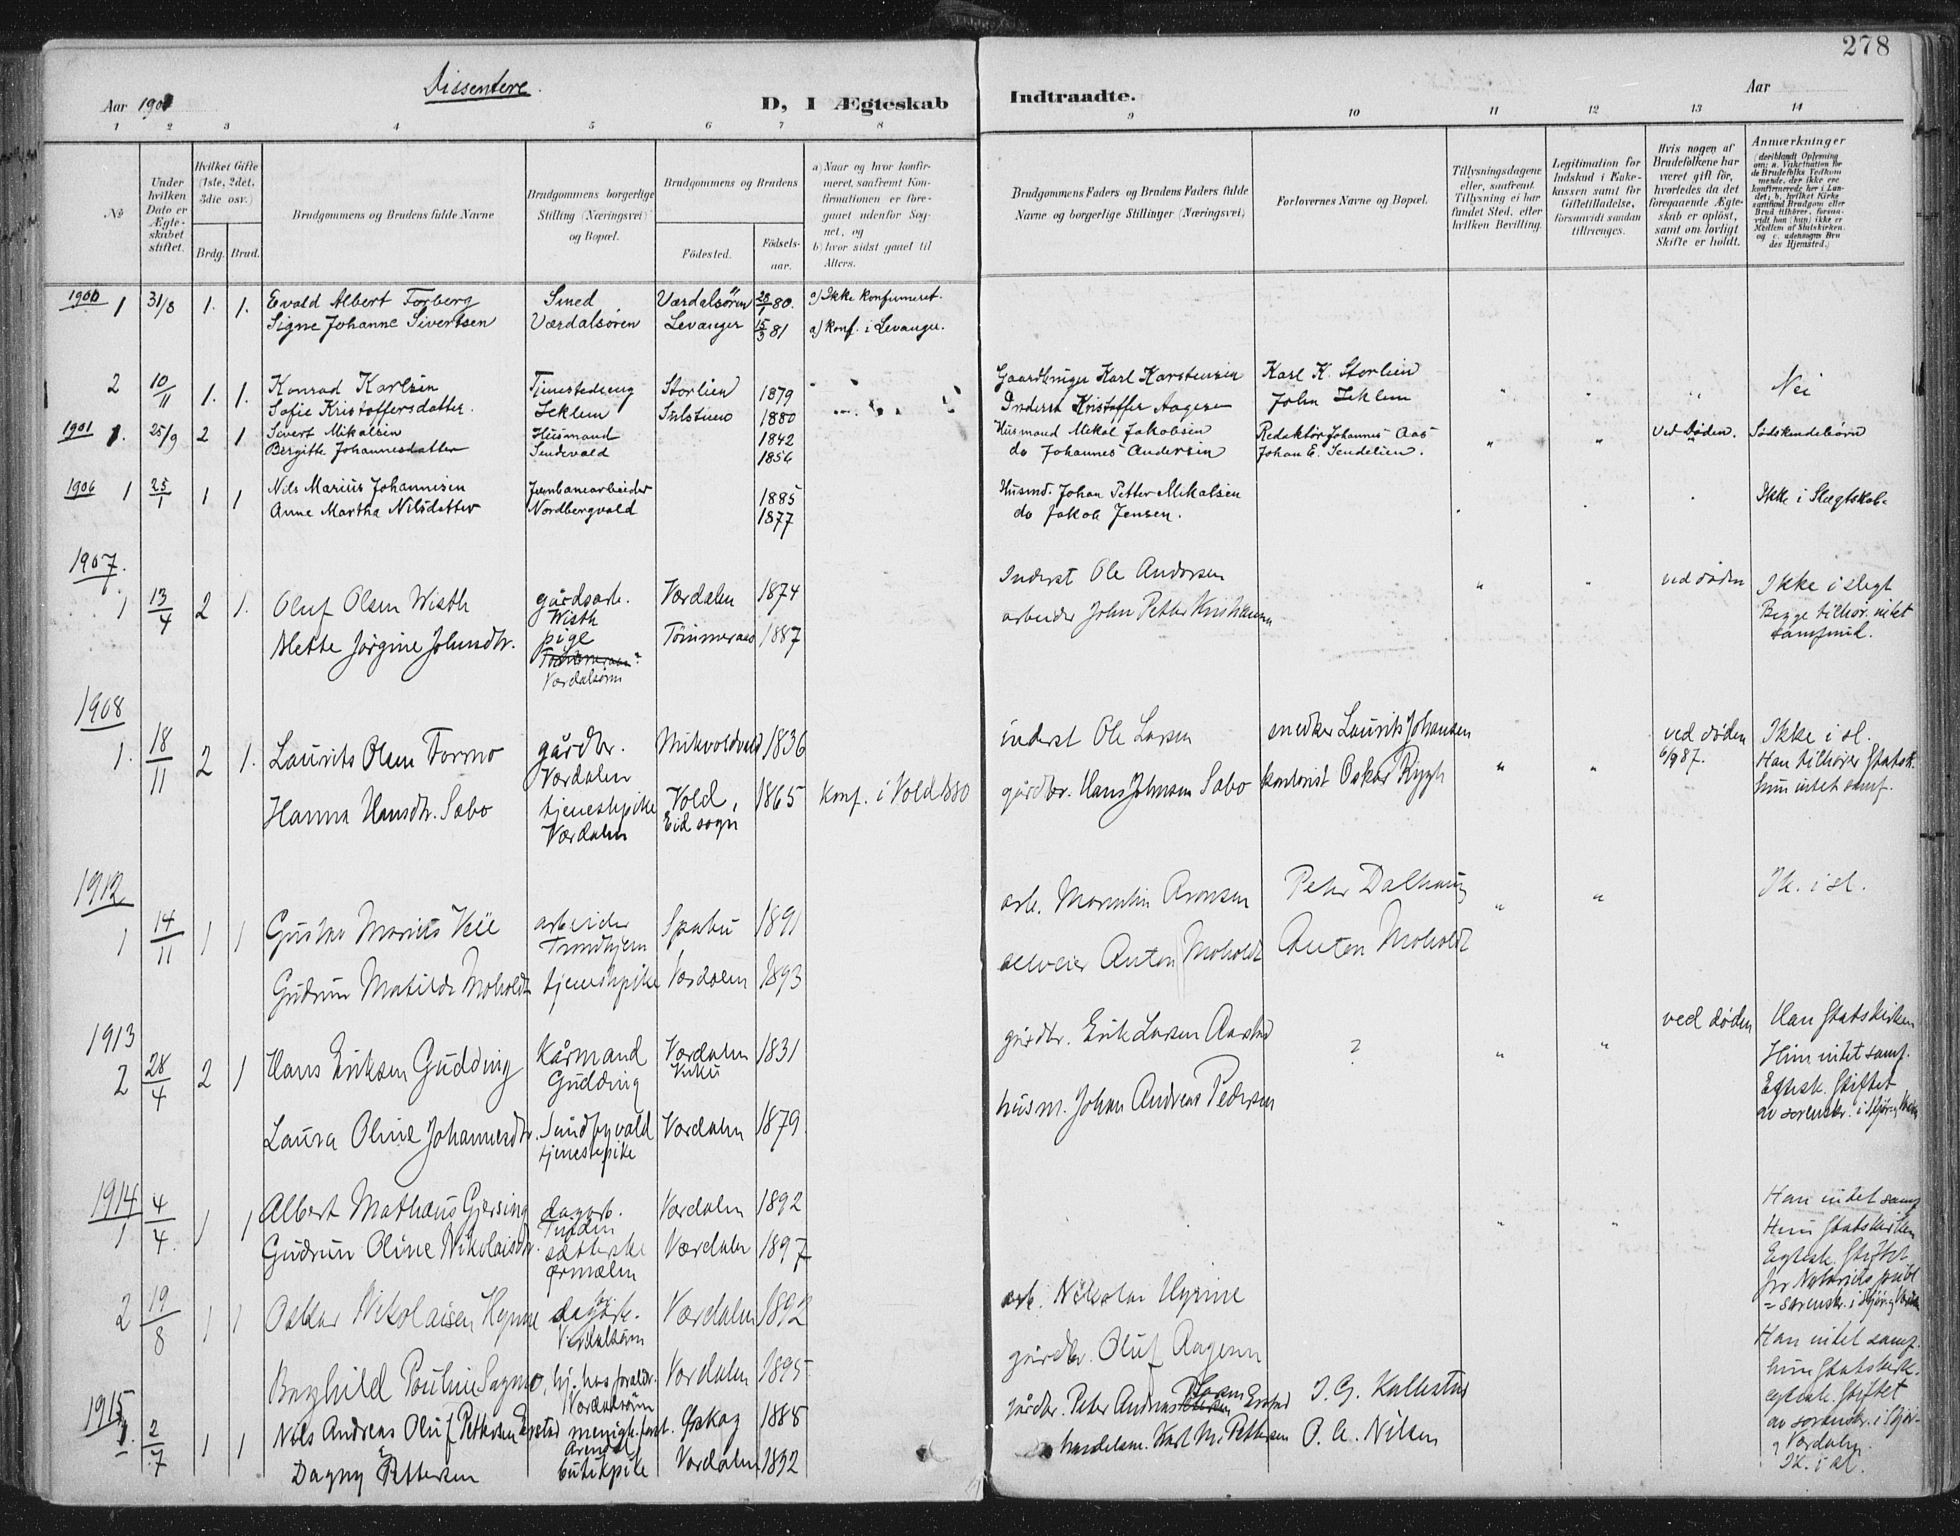 278
Dissentere.
Aar 190
D, I Ægteskab Indtraadte.
Aar
1 2 3 4 5 6 7 8 9 10 11 12 13 14
No
Under hvilken Dato er Ægteskabet stiftet.
Hvilket Gifte (1ste, 2det, 3die osv.)
Brdg. Brud.
Brudgommens og Brudens fulde Navne
Brudgommens borgerlige Stilling (Næringsvei) og Bopæl.
Brudgommens og Brudens
Födested.
Födselsaar.
a) Naar og hvor konfirmeret, saafremt Konfirmationen er foregaaet udenfor Sognet, og
b) hvor sidst gaaet til Alters.
Brudgommens Faders og Brudens Faders fulde Navne og borgerlige Stillinger (Næringsvei)
Forlovernes Navne og Bopæl.
Tillysningsdagene eller, saafremt Tillysning ei har fundet Sted, efter hvilken Bevilling.
Legitimation for Indskud i Enkekassen samt for Giftetilladelse, forsaavidt saadan tiltrænges.
Hvis nogen af Brudefolkene har været gift för, hvorledes da det foregaaende Ægteskab er oplöst, samt om lovligt Skifte er holdt.
Anmærkninger
1900 1 31/8 1. 1. Evald Albert Forberg Smed Værdalsören 28/1 80. a) Ikke konfirmeret.
Signe Johanne Sivertsen Værdalsören Levanger 15/3 81 a) konf. i Levanger.
2 10/11 1. 1. Konrad Karlsen Tjenestedreng Storlien 1879 Gaardbruger Karl Karstensen Karl K. Storlien " Nei
Sofie Kristoffersdatter. Leklem Sulstuen 1880 Inderst Kristoffer Aagesen John Leklem
1901 1. 25/9 2 1 Sivert Mikalsen Husmand 1842 Husmand Mikal Jakobsen Redaktör Johannes Aas " " Ved Döden. Södskendebörn
Bergitte Johannesdatter Sendevald 1856 do Johannes Andersen Johan E. Sendelien.
1906 1 25/1 1 1 Nils Marius Johannesen Jernbanearbeider 1885 Husmd. Johan Petter Mikalsen Ikke i Slægtskab.
Anne Martha Nilsdatter Nordbergvald 1877 do Jakob Jensen.
1907.
1 13/4 2 1. Oluf Olsen Wisth gårdsarb. Wisth Værdalen 1874 Inderst Ole Andersen " " ved døden Ikke i slegt
Mette Jørgine Johnsdtr. pige Værdalsøren Tømmeraas 1887 arbeider John Petter Kristiansen Begge tilhør. intet samfund.
1908
1. 18/11 2 1. Laurits Olsen Formo gårdbr. Værdalen Mikvoldvald 1836 inderst Ole Larsen snedker Laurits Johansen " " ved døden 6/9 87. Ikke i sl.
Hanna Hansdtr. Sæbo tjenestepike Værdalen Vold, Eid sogn 1865 Konf. i Vold 1880 gårdbr. Hans Johnsen Sæbo kontorist Oskar Rygh Han tilhører Statsk. hun intet samf.
1912
1 14/11 1 1 Gustav Marius Veie arbeider Trondhjem Sparbu 1891 arb. Martin Aronsen Peter Dalhaug " " Ik. i sl.
Gudrun Matilde Moholdt tjenestepike Værdalen 1893 Anton Moholdt Anton Moholdt
1913
2 28/4 2 1 Hans Eriksen Gudding Kårmand Gudding Værdalen 1831 gårdbr. Erik Larsen Aarstad ? " " ved døden Han Statskirken
Laura Oline Johannesdtr. Sundbyvald tjenestepike Værdalen 1879. husm. Johan Andreas Pedersen Hun intet samf.
Egtesk. stiftet av sorenskr. i Stjør- og Værdalen
1914
1 4/4 1 1 Albert Mathæus Gjersing dagarb. Værdalen 1892 " " Han intet samf
Gudrun Oline Nikolaisdtr. Ørmælen Værdalen 1897 Hun Statskirken
Egtesk. stiftet for Notarius publ = sorenskr. i Stjør- og Værdalen
2 19/8 1 1 Oskar Nikolaisen Hynne dagarb. Værdalsøren Værdalen 1892 arb. Nikolai Hynne Han intet samf.
Borghild Pouline Sagmo, hj. hos foreldr. Værdalsøren Værdalen 1895 gårdbr. Oluf Aagesen hun Statskirk.
egtesk. stiftet av sorenskr. i Stjør- og Værdalen.
1915
1. 2/7 1 1 Nils Andreas Oluf Pettersen Erstad Arendal Øpskog 1888 gårdbr. Peter Andreas Larsen Erstad J. G. Kallestad Ik. i sl.
Dagny Pettersen butikpike Værdalen 1892 handelsm. Karl M. Pettersen P. A. Nilsen